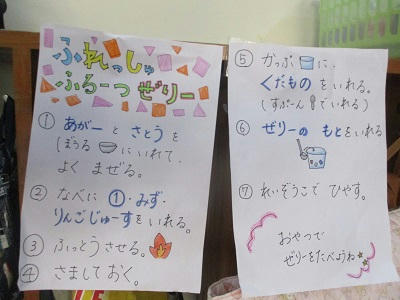 ふれっしゅ
ふるーつ ぜりー
① あがー と さとう を
(ぼうる に いれて、
よく まぜる。
② なべに ①・みず・
りんごじゅーすをいれる。
③ ふっとうさせる。
④ さましておく。
⑤ かっぷ に、
くだものをいれる。
(すぷーん でいれる)
⑥ ぜりーの もとをいれる
⑦ れいぞうこで ひやす。
おやつで
ぜりーをたべようね